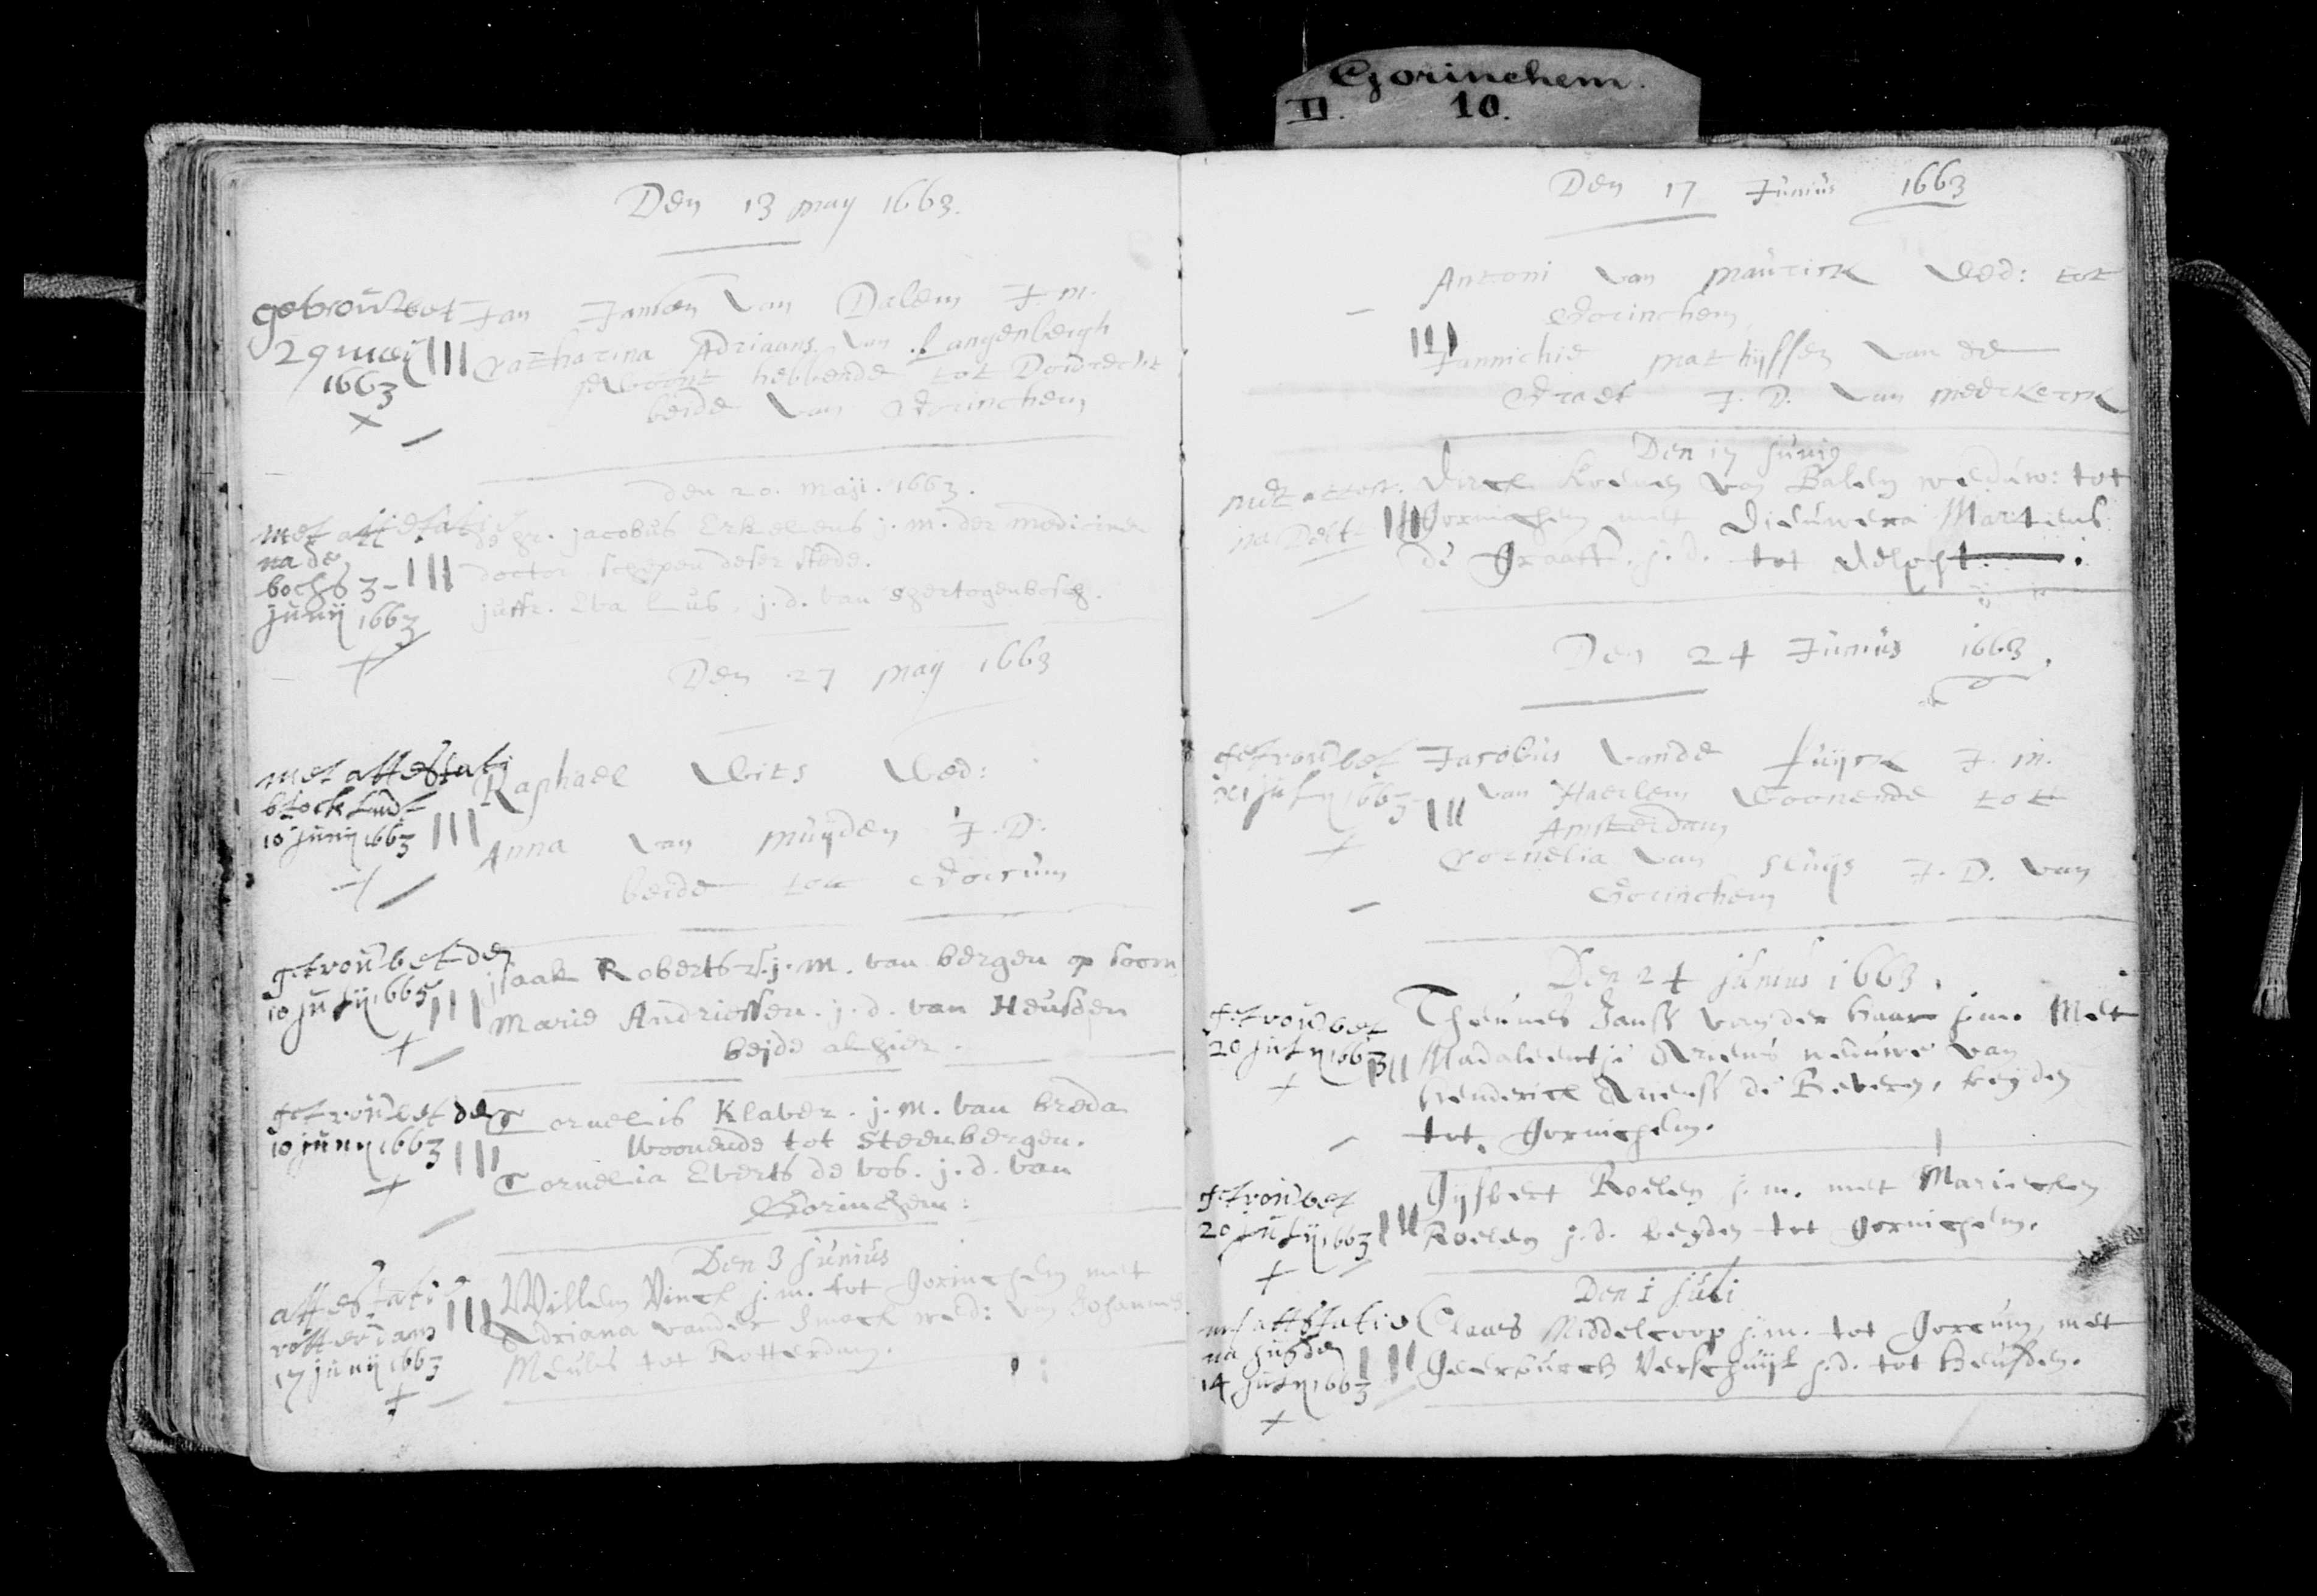 Gorinchem.
II. 10.
Den 13 may 1663.
getrouwet
29 meij
1663
Jan Jansen van Dalem J. m.
Catharina Adriaans van Langenbergh
gewoont hebbende tot Dordrecht
beide van Gorinchem
den 20. Maji. 1663.
met attestatie
na de
bochs 3
junij 1663
de Hr. jacobus Erkelens j. m. der medicinen
doctor, schepen deser stede.
juffr. Eva Lus, j. d. van Shertogenbosch.
Den 27 may 1663
met attestati
10 junij 1663
Raphael Wits Wed:
Anna van Muyden J. D.
beide tot Gorcum
getrouwet den
10 1663
isaak Roberts j. m. van bergen op soom
Marie Andriessen. j. d. van Heusden
beide alhier.
getrouwet den
10 junij 1663
Cornelis Klaver. j. m. van breda
woonende tot Steenbergen.
Cornelia Everts de vos. j. d. van
Gorinchem:
Den 3 Junius
attestatie
rotterdam
17 junij 1663
Willem Vinck j. m. tot Gorinchem met
Adriana vander Smack wed: van Johannes
Meulis tot Rotterdam.
Den 17 Junius 1663
Antoni van Maurick Wed: tot
Gorinchem
Jannichie Mathijssen van de
Graef J. D. van Meerkerck
Den 17 Junij
met attest.
na Delft
Dirck Koenen van Balen weduw: tot
Gorinchem met Dieuwera Martens
de Graaff. j. d. tot Delft.
Den 24 Junius 1663.
getrouwet
julij 1663
Jacobus vande J. m.
van Haerlem Woonende tot
Amsterdam
Cornelia van Sluijs J. D. van
Gorinchem
Den 24 junius 1663.
getrouwet
20 julij 1663
Theunes Janss vander Haar j. m. Met
Madaleentje Ariens weduwe van
Henderick Arienss de Bevere, beyden
tot Gorinchem.
getrouwet
20 julij 1663
Gysbert Roelen j. m. met Mariecken
Roelen j. d. beyden tot Gorinchem.
Den 1 Juli
met attestatie
na husden
14 julij 1663
Claes Middelcoop j. m. tot Gorcum, met
Geerburch Verschuijl j. d. tot Heusden.